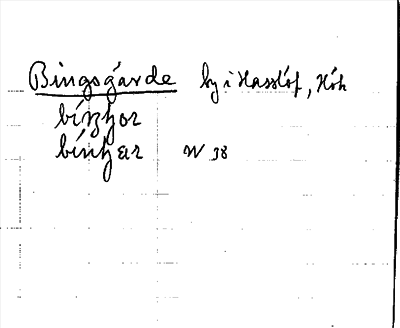 Bingsgärde by i Hasslöf, Höh
bíŋʒor
bínʒær W 38